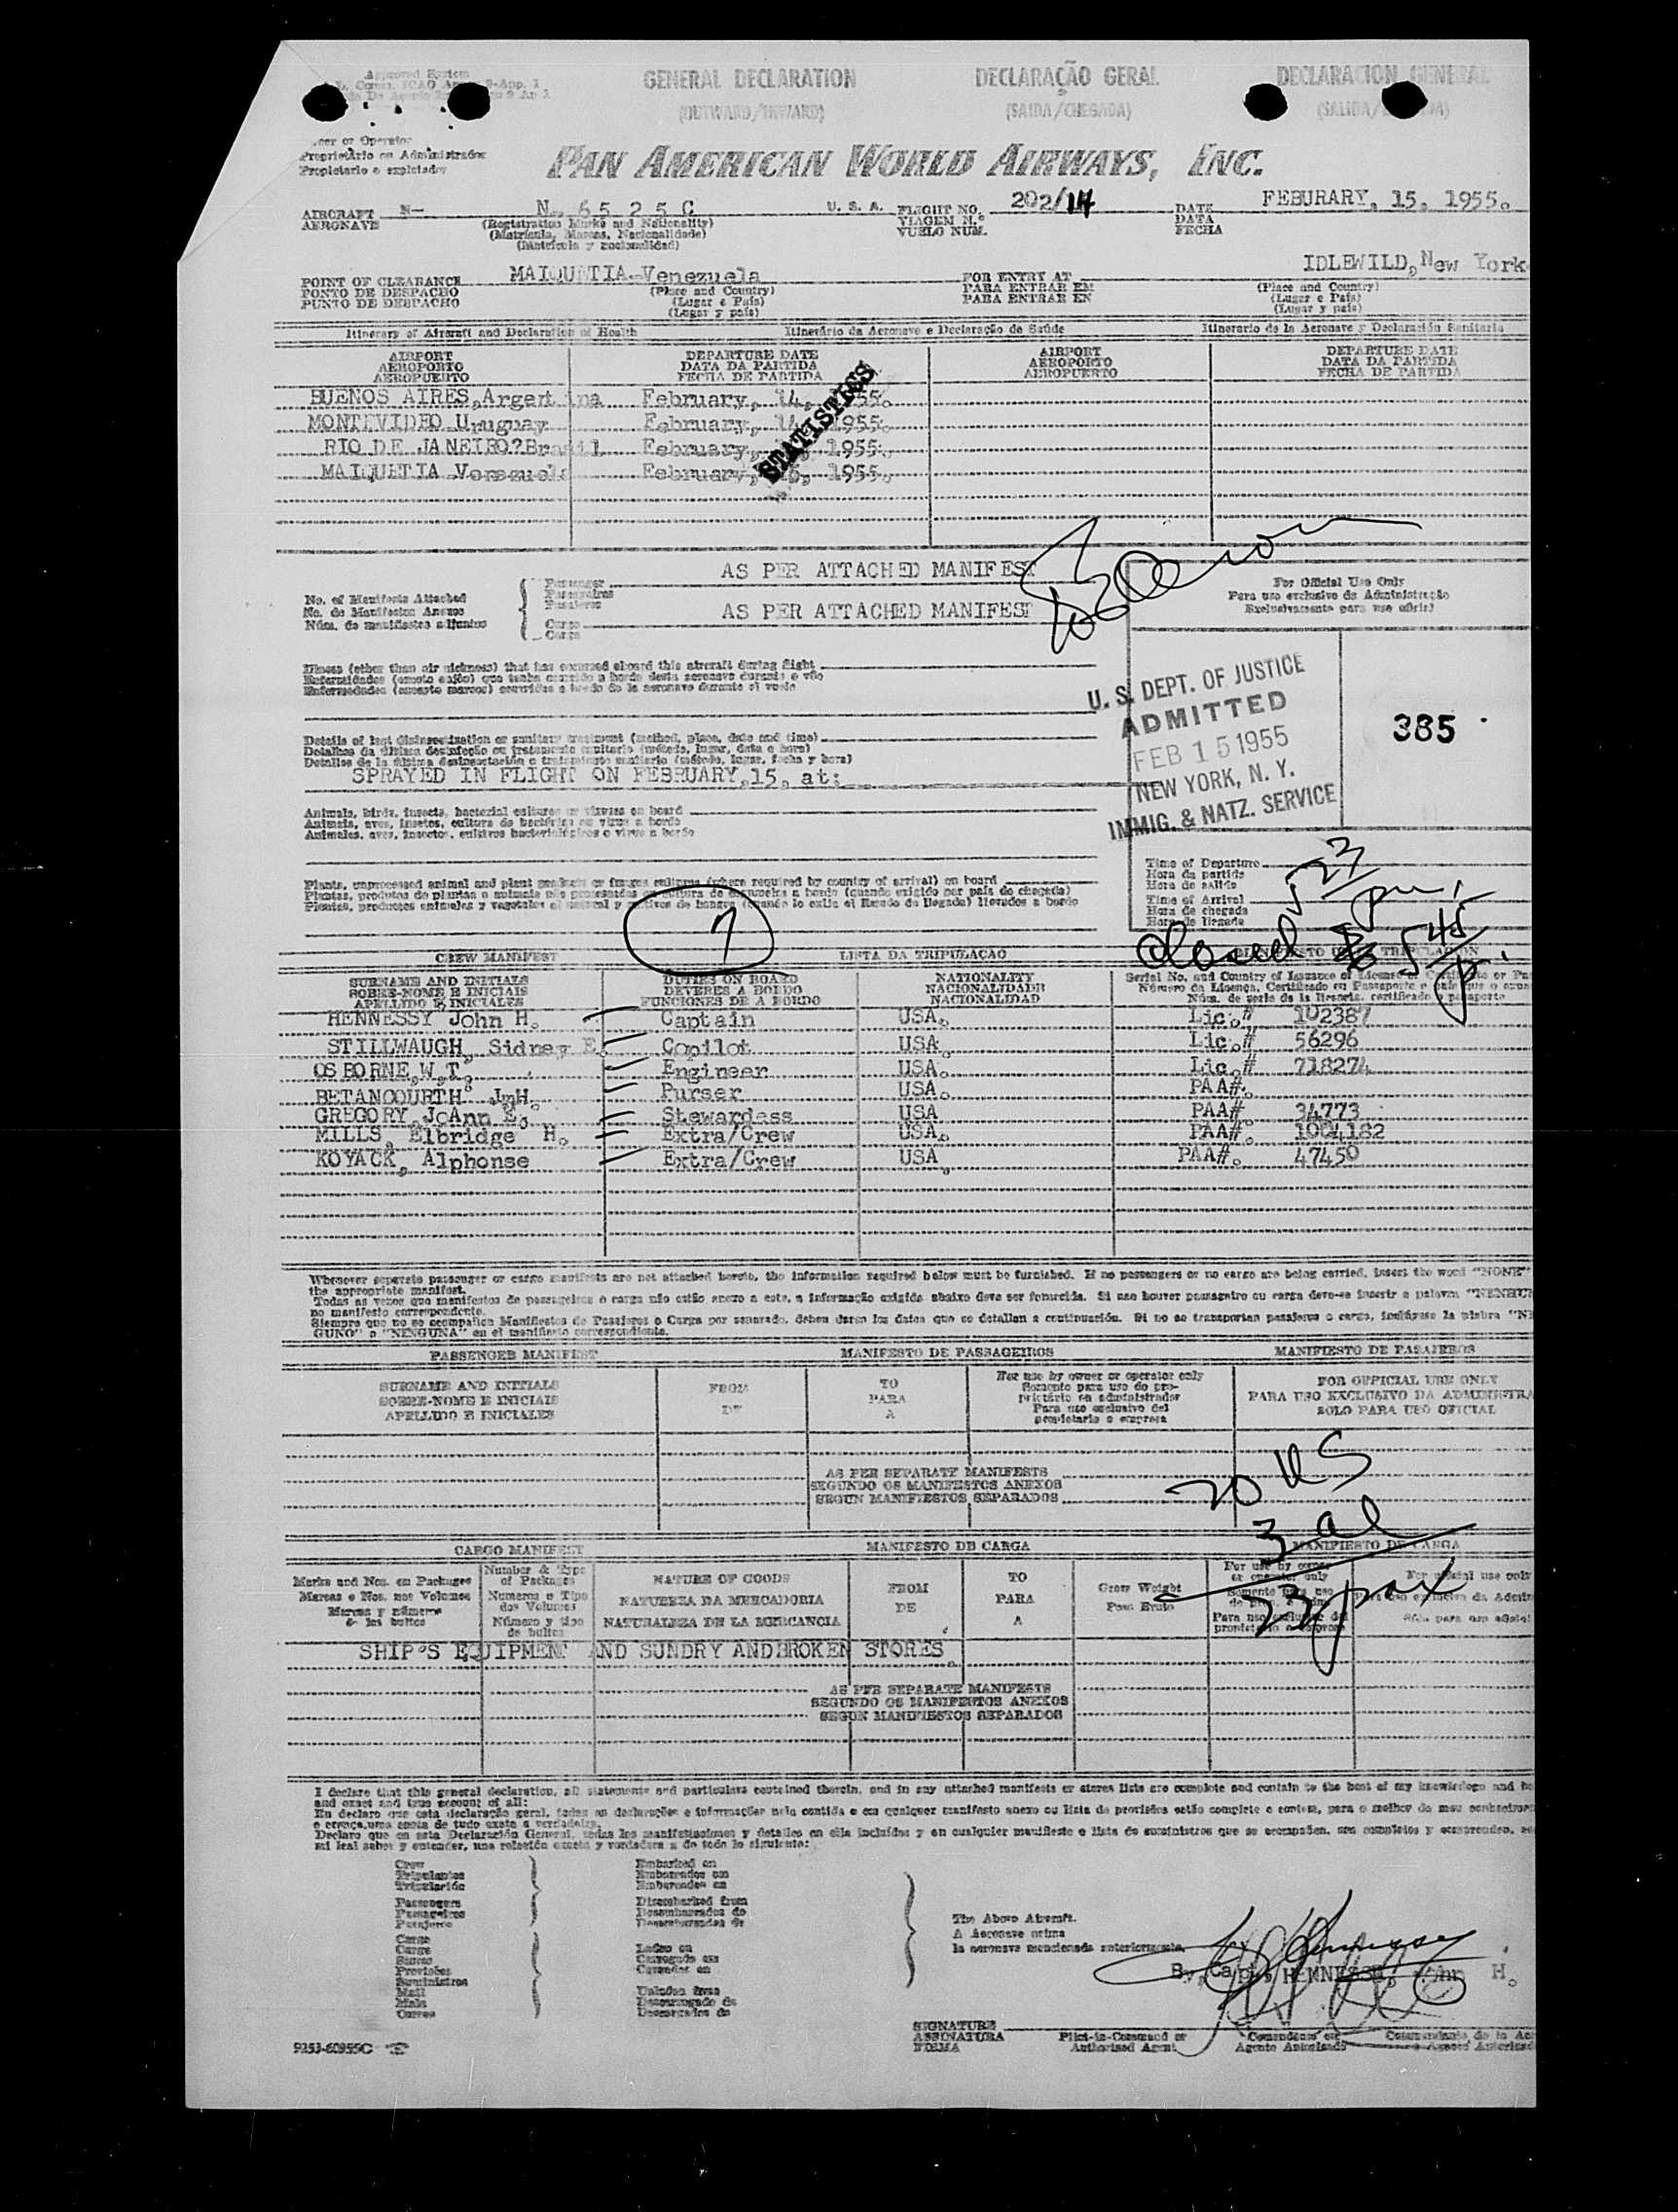 GENERAL DECLARATION DECLARAÇÃO GERAL DECLARACION GENERAL
(OUTWARD/INWARD) (SAIDA/CHEGADA)
Proprietário ou Administrador
Propietario o explotador
PAN AMERICAN WORLD AIRWAYS, INC.
AIRCRAFT N- N. 6525C U. S. A. FLIGHT NO. 202/14 DATE FEBURARY, 15, 1955.
AERONAVE (Registration Marks and Nationality) VIAGEM N.º DATA
(Matrícula, Marcas, Nacionalidade) VUELO NUM. FECHA
(Matrícula y nacionalidad)
POINT OF CLEARANCE MAIQUETIA-Venezuela FOR ENTRY AT IDLEWILD, New York
PONTO DE DESPACHO (Place and Country) PARA ENTRAR EM (Place and Country)
PUNTO DE DESPACHO (Lugar e País) PARA ENTRAR EN (Lugar e País)
(Lugar y país) (Lugar y país)
Itinerary of Aircraft and Declaration of Health Itinerário da Aeronave e Declaração de Saúde Itinerario de la Aeronave y Declaración Sanitaria
AIRPORT DEPARTURE DATE AIRPORT DEPARTURE DATE
AEROPORTO DATA DA PARTIDA AEROPORTO DATA DA PARTIDA
AEROPUERTO FECHA DE PARTIDA AEROPUERTO FECHA DE PARTIDA
BUENOS AIRES, Argentina February, 14, 1955.
MONTEVIDEO Uruguay February, 14, 1955.
RIO DE JANEIRO?Brasil February, 1955.
MAIQUETIA Venezuela February, 15, 1955.
STATISTICS
AS PER ATTACHED MANIFEST
No. of Manifests Attached Passenger For Official Use Only
No. de Manifestos Anexos Passageiros Para uso exclusivo da Administração
Núm. de manifiestos adjuntos Pasajeros Exclusivamente para uso oficial
AS PER ATTACHED MANIFEST
Cargo
Carga
Illness (other than air sickness) that has occurred aboard this aircraft during flight
Enfermidades (exceto enjôo) que tenha ocorrido a bordo desta aeronave durante o vôo
Enfermedades (excepto mareos) ocurridas a bordo de la aeronave durante el vuelo
U. S. DEPT. OF JUSTICE
ADMITTED
FEB 15 1955
NEW YORK, N. Y.
IMMIG. & NATZ. SERVICE
385
Details of last disinsectization or sanitary treatment (method, place, date and time)
Detalhes da última desinfeção ou tratamento sanitario (método, lugar, data e hora)
Detalles de la última desinsectación o tratamiento sanitario (método, lugar, fecha y hora)
SPRAYED IN FLIGHT ON FEBRUARY,15, at:
Animals, birds, insects, bacterial cultures or viruses on board
Animais, aves, insetos, cultura de bactérias ou virus a bordo
Animales, aves, insectos, cultivos bacteriológicos o virus a bordo
Time of Departure
Hora da partida
Hora de salida
Time of Arrival 5 23/pm.
Hora da chegada
Hora de llegada
Plants, unprocessed animal and plant products or fungus cultures (where required by country of arrival) on board
Plantas, produtos de plantas e animais não processados ou cultura de cogumelos a bordo (quando exigido por país de chegada)
Plantas, productos animales y vegetales al natural y cultivos de hongos (cuando lo exija el Estado de llegada) llevados a bordo
7
closed 5 45/p.
CREW MANIFEST LISTA DA TRIPULAÇÃO
SURNAME AND INITIALS DUTIES ON BOARD NATIONALITY Serial No. and Country of Issuance of License or Certificate or
SOBRE-NOME E INICIAIS DEVERES A BORDO NACIONALIDADE
APELLIDO E INICIALES FUNCIONES DE A BORDO NACIONALIDAD
HENNESSY John H. Captain USA. Lic.# 102387
STILLWAUGH, Sidney E. Copilot USA. Lic.# 56296
OSBORNE,W.T. Engineer USA. Lic.# 718274
BETANCOURTH J.H. Purser USA. PAA#.
GREGORY, JoAnn E. Stewardess USA PAA#. 34773
MILLS, Elbridge H. Extra/Crew USA. PAA#. 1004182
KOYACK, Alphonse Extra/Crew USA. PAA#. 47450
Whenever separate passenger or cargo manifests are not attached hereto, the information required below must be furnished. If no passengers or no cargo are being carried, insert the word "NONE"
the appropriate manifest.
Todas as vezes que manifestos de passageiros e carga não estão anexo a este, a informação exigida abaixo deve ser fornecida. Si nao houver passageiro ou carga deve-se inserir a palavra "NENHUM
no manifesto correspondente.
Siempre que no se acompañen Manifiestos de Pasajeros o Carga por separado, deben darse los datos que se detallan a continuación. Si no se transportan pasajeros o carga, inclúyase la palabra "NI
GUNO" o "NINGUNA" en el manifiesto correspondiente.
PASSENGER MANIFEST MANIFESTO DE PASSAGEIROS MANIFIESTO DE PASAJEROS
SURNAME AND INITIALS FROM TO For use by owner or operator only FOR OFFICIAL USE ONLY
SOBRE-NOME E INICIAIS DE PARA Somente para uso do proprietário ou administrador PARA USO EXCLUSIVO DA ADMINISTRA
APELLIDO E INICIALES A Para uso exclusivo del propietario o empresa SOLO PARA USO OFICIAL
AS PER SEPARATE MANIFESTS
SEGUNDO OS MANIFESTOS ANEXOS
SEGUN MANIFIESTOS SEPARADOS
20 US
3 al
23 pax
CARGO MANIFEST MANIFESTO DE CARGA MANIFIESTO DE CARGA
Marks and Nos. on Packages Number & Type of Packages NATURE OF GOODS FROM TO Gross Weight
Marcas e Nos. nos Volumes Numeros e Tipo dos Volumes NATUREZA DA MERCADORIA DE PARA Peso Bruto
Marcas y números de los bultos Número y tipo de bultos NATURALEZA DE LA MERCANCIA A
SHIP'S EQUIPMENT AND SUNDRY ANDBROKEN STORES.
AS PER SEPARATE MANIFESTS
SEGUNDO OS MANIFESTOS ANEXOS
SEGUN MANIFIESTOS SEPARADOS
I declare that this general declaration, all statements and particulars contained therein, and in any attached manifests or stores lists are complete and contain to the best of my knowledge and be
and exact and true account of all:
Crew Embarked on
Tripulantes Embarcados em
Tripulación Embarcados en
Passengers Disembarked from
Passageiros Desembarcados de
Pasajeros Desembarcados de
Cargo Laden on
Carga Carregado em
Stores Cargados en
Provisões
Suministros
Mail Unladen from
Mala Descarregado de
Correo Descargados de
The Above Aircraft.
A Aeronave acima
la aeronave mencionada anteriormente.
By, Capt, HENNESSY, John H.
SIGNATURE Pilot-in-Command or Comandante ou
ASSINATURA Authorized Agent Agente Autorizado
FIRMA
9253-60955C